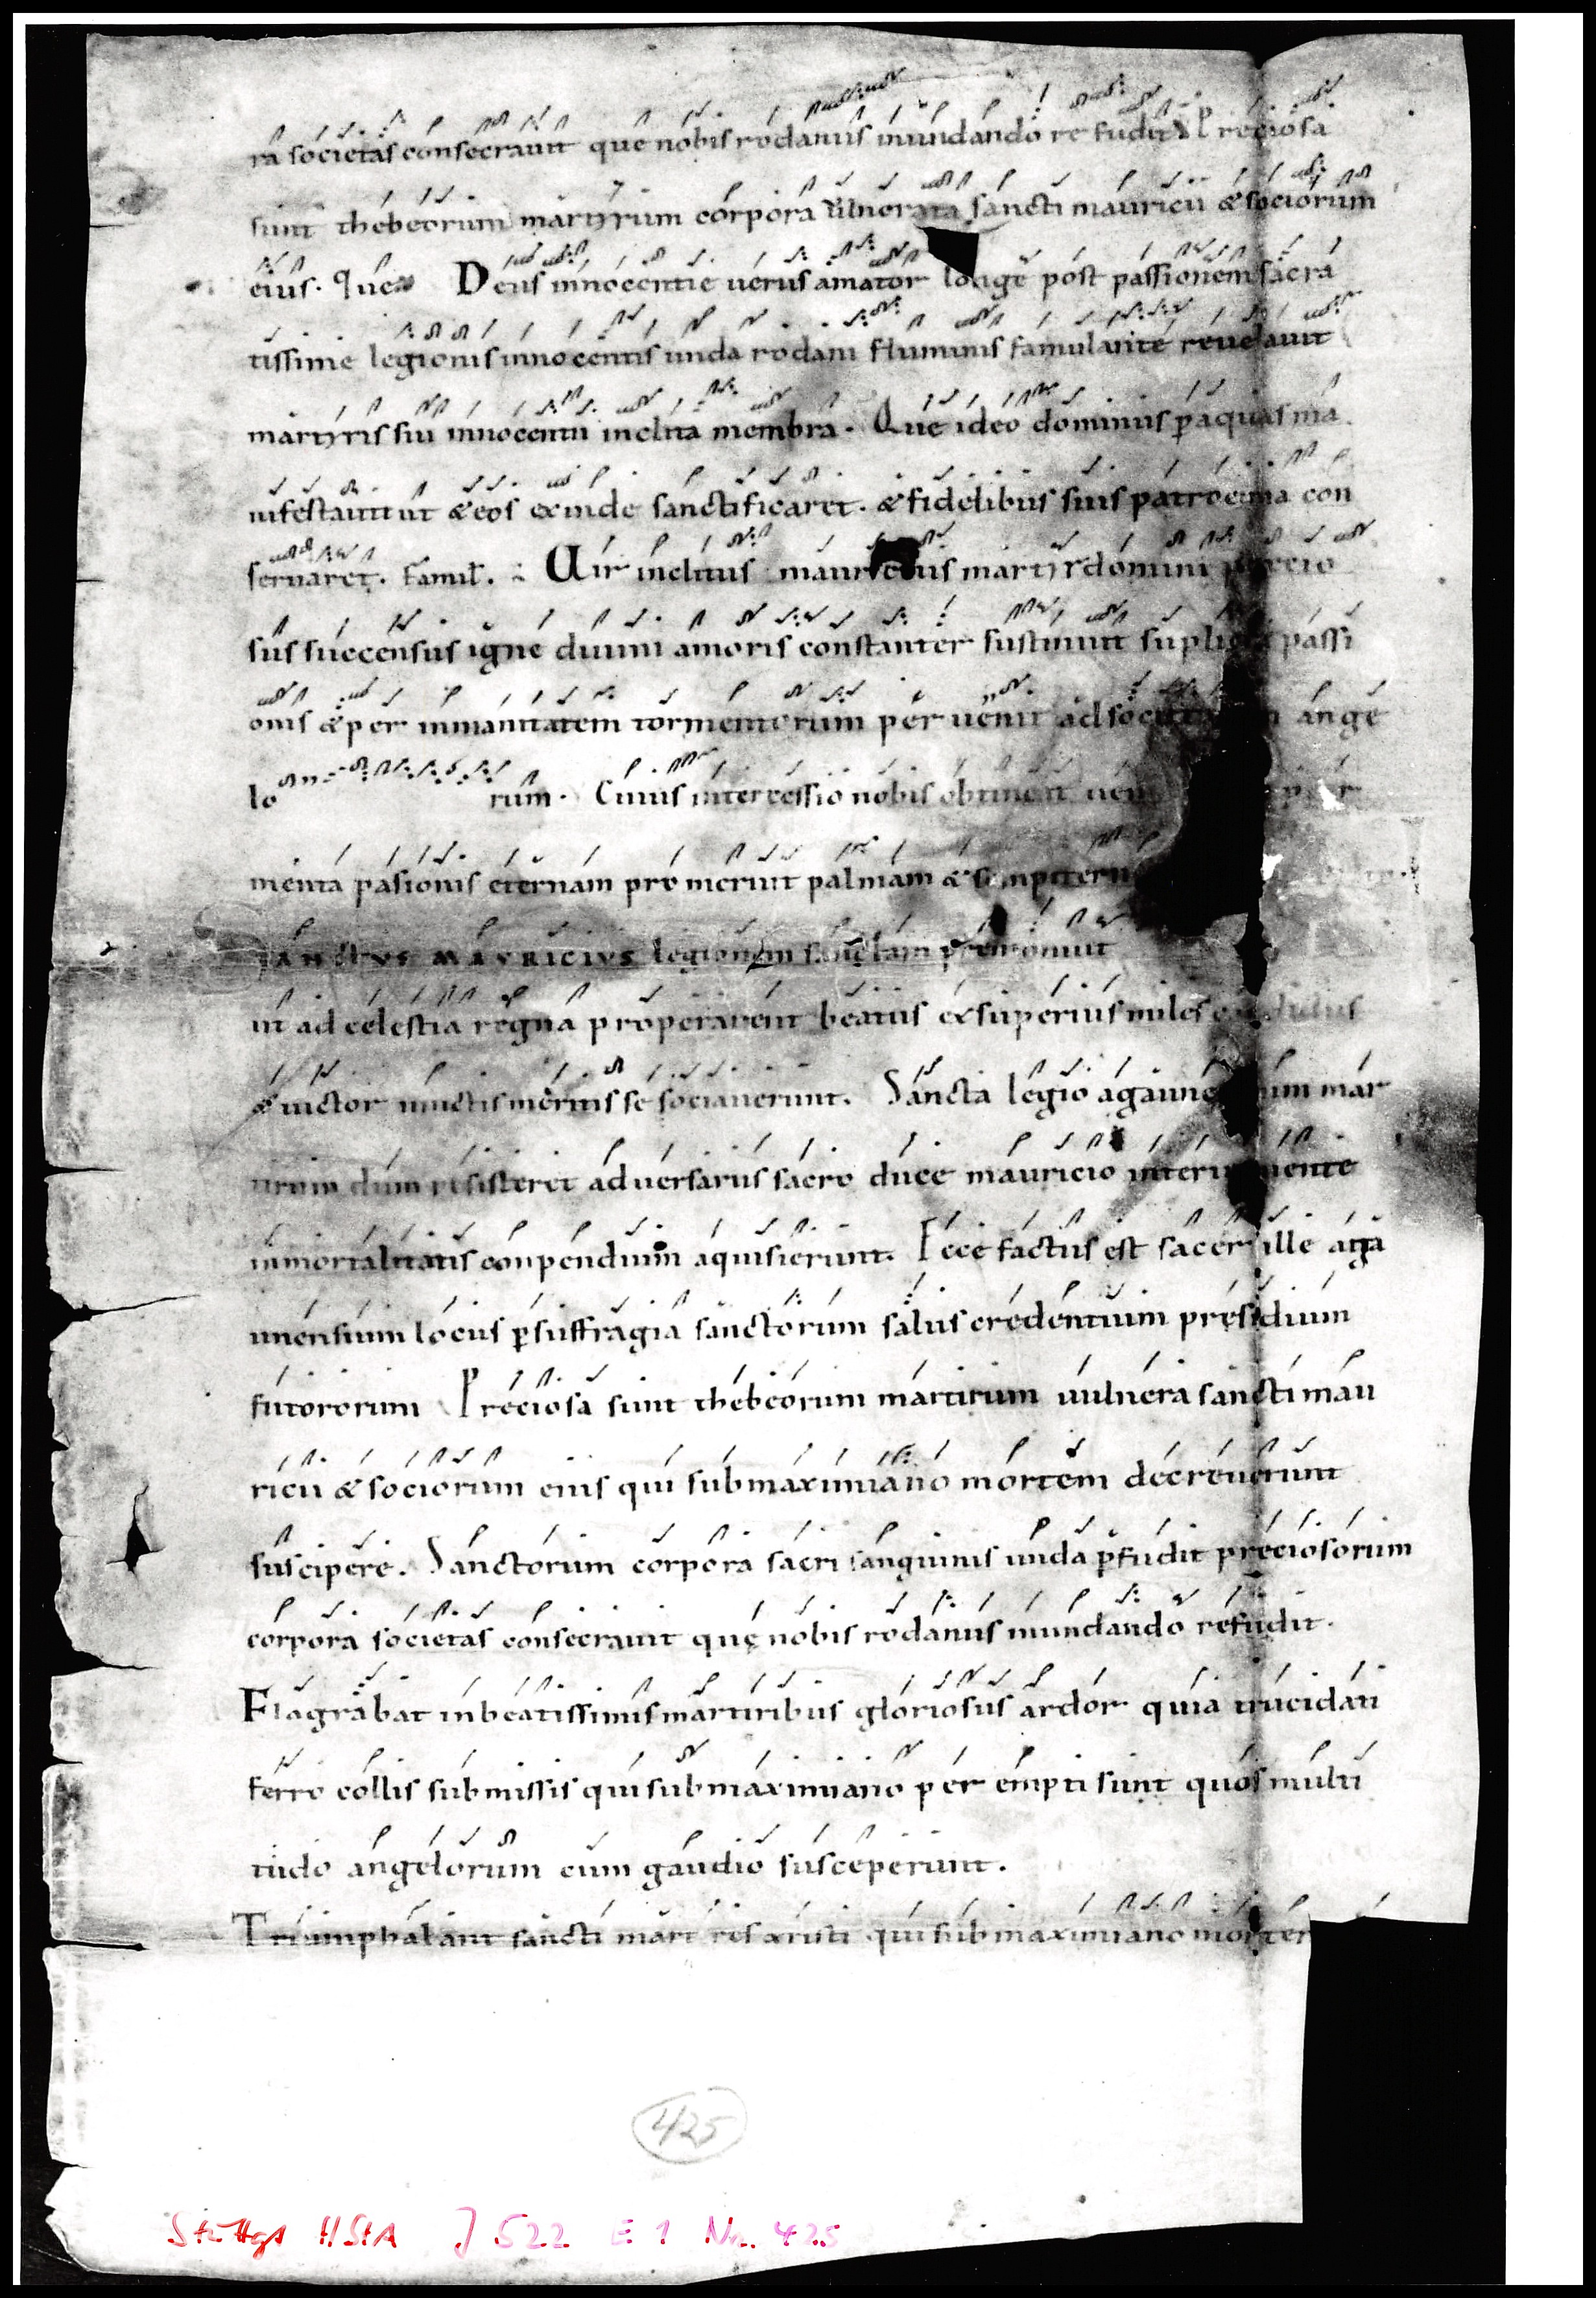 ra societas consecrauit que nobis rodanus inundando re fudit V Preciosa
sunt thebeorum martyrum corpora uulnerata sancti mauricii & sociorum
eius. Que Deus innocentie uerus amator longe post passionem sacra
tissime legionis innocentis unda rodani fluminis famulante reuelauit
martyris sui innocentii inclita membra. Que ideo dominus p aquas ma
nifestauit ut & eos exinde sanctificaret. & fidelibus suis patrocinia con
seruaret. Famul. Uir inclitus mauricius martyr domini precio
sus succensus igne diuini amoris constanter sustinuit suplicia passi
onis & per inmanitatem tormentorum per uenit ad ange
lo rum. Cuius intercessio nobis obtineat per
menta pasionis eternam pro meruit palmam &
SANCTVS MAVRICIVS legionem sanctam
ut ad celestia regna properarent beatus exsuperius miles
& uictor uinctis meritis se sociauerunt. Sancta legio agaune um mar
tirum dum resisteret aduersariis sacro duce mauricio
inmortalitatis conpendium aquisierunt. Fece factus est sacer ille aga
unensium locus p suffragia sanctorum salus credentium presidium
futororum Preciosa sunt thebeorum martirum uulnera sancti mau
ricii & sociorum eius qui sub maximiano mortem decreuerunt
suscipere. Sanctorum corpora sacri sanguinis unda pfudit preciosorum
corpora societas consecrauit que nobis rodanus inundando refudit.
Flagrabat in beatissimis martiribus gloriosus ardor quia trucidati
ferro collis submissis qui sub maximiano per empti sunt quos multi
tudo angelorum cum gaudio susceperunt.
Triumphabant sancti mart res xristi qui sub maximiano morter
425
Stuttgt HStA J 522 E 1 Nr. 425